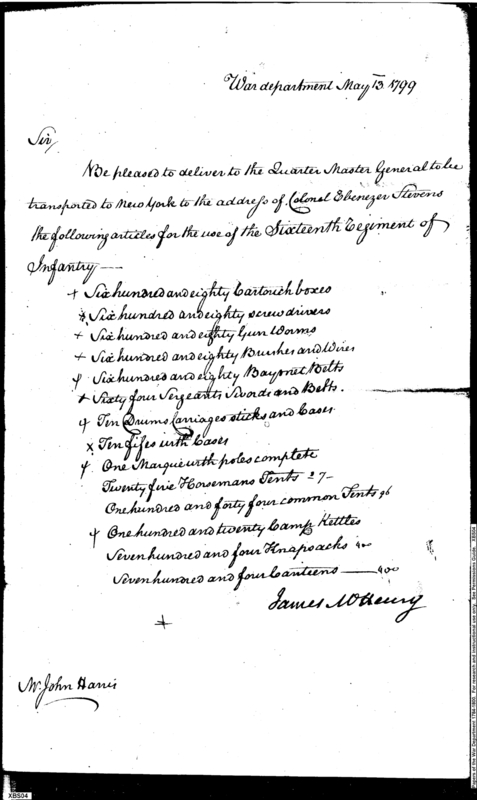 War department May 13 1799
Sir,
Be pleased to deliver to the Quarter Master General to be
transported to New York to the address of Colonel Ebenezer Stevens
the following articles for the use of the Sixteenth Regiment of
Infantry —
+ Six hundred and eighty Cartouch boxes
Six hundred and eighty screw drivers
+ Six hundred and eighty Gun Worms
+ Six hundred and eighty Brushes and Wires
Six hundred and eighty Bayonet Belts
+ Sixty four Sergeants Swords and Belts.
Ten Drums Carriages sticks and Cases
x Ten fifes with Cases
One Marquie with poles complete
Twenty five Horsemans Tents 27-
One hundred and forty four common Tents 96
One hundred and twenty Camp Kettles
Seven hundred and four Knapsacks 400
Seven hundred and four Canteens — 400
James McHenry
+
Mr. John Harris
XBS04
Papers of the War Department 1784-1800. For research and instructional use only. See Permissions Guide. XBS04